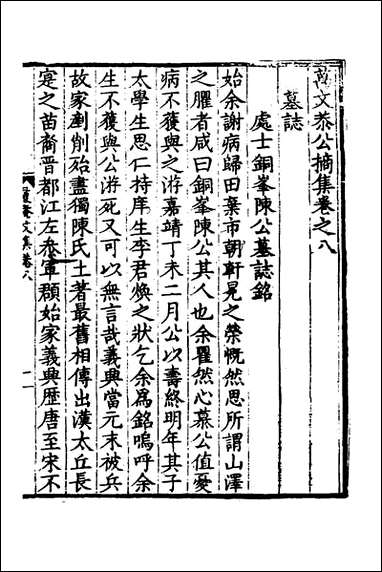 萬文恭公摘集卷之八
墓誌
處士銅峯陳公墓誌銘
始余謝病歸田葉市朝軒冕之榮慨然思所謂山澤
之臞者咸曰銅峯陳公其人也余瞿然心慕公值憂
病不獲與之游嘉靖丁未二月公以壽終明年其子
太學生思仁持庠生李君煥之狀乞余爲銘嗚呼余
生不獲與公游死又可以無言哉義興當元末被兵
故家剷削殆盡獨陳氏土著最舊相傳出漢太丘長
寔之苗裔晋都江左參軍顒始家義興歷唐至宋不